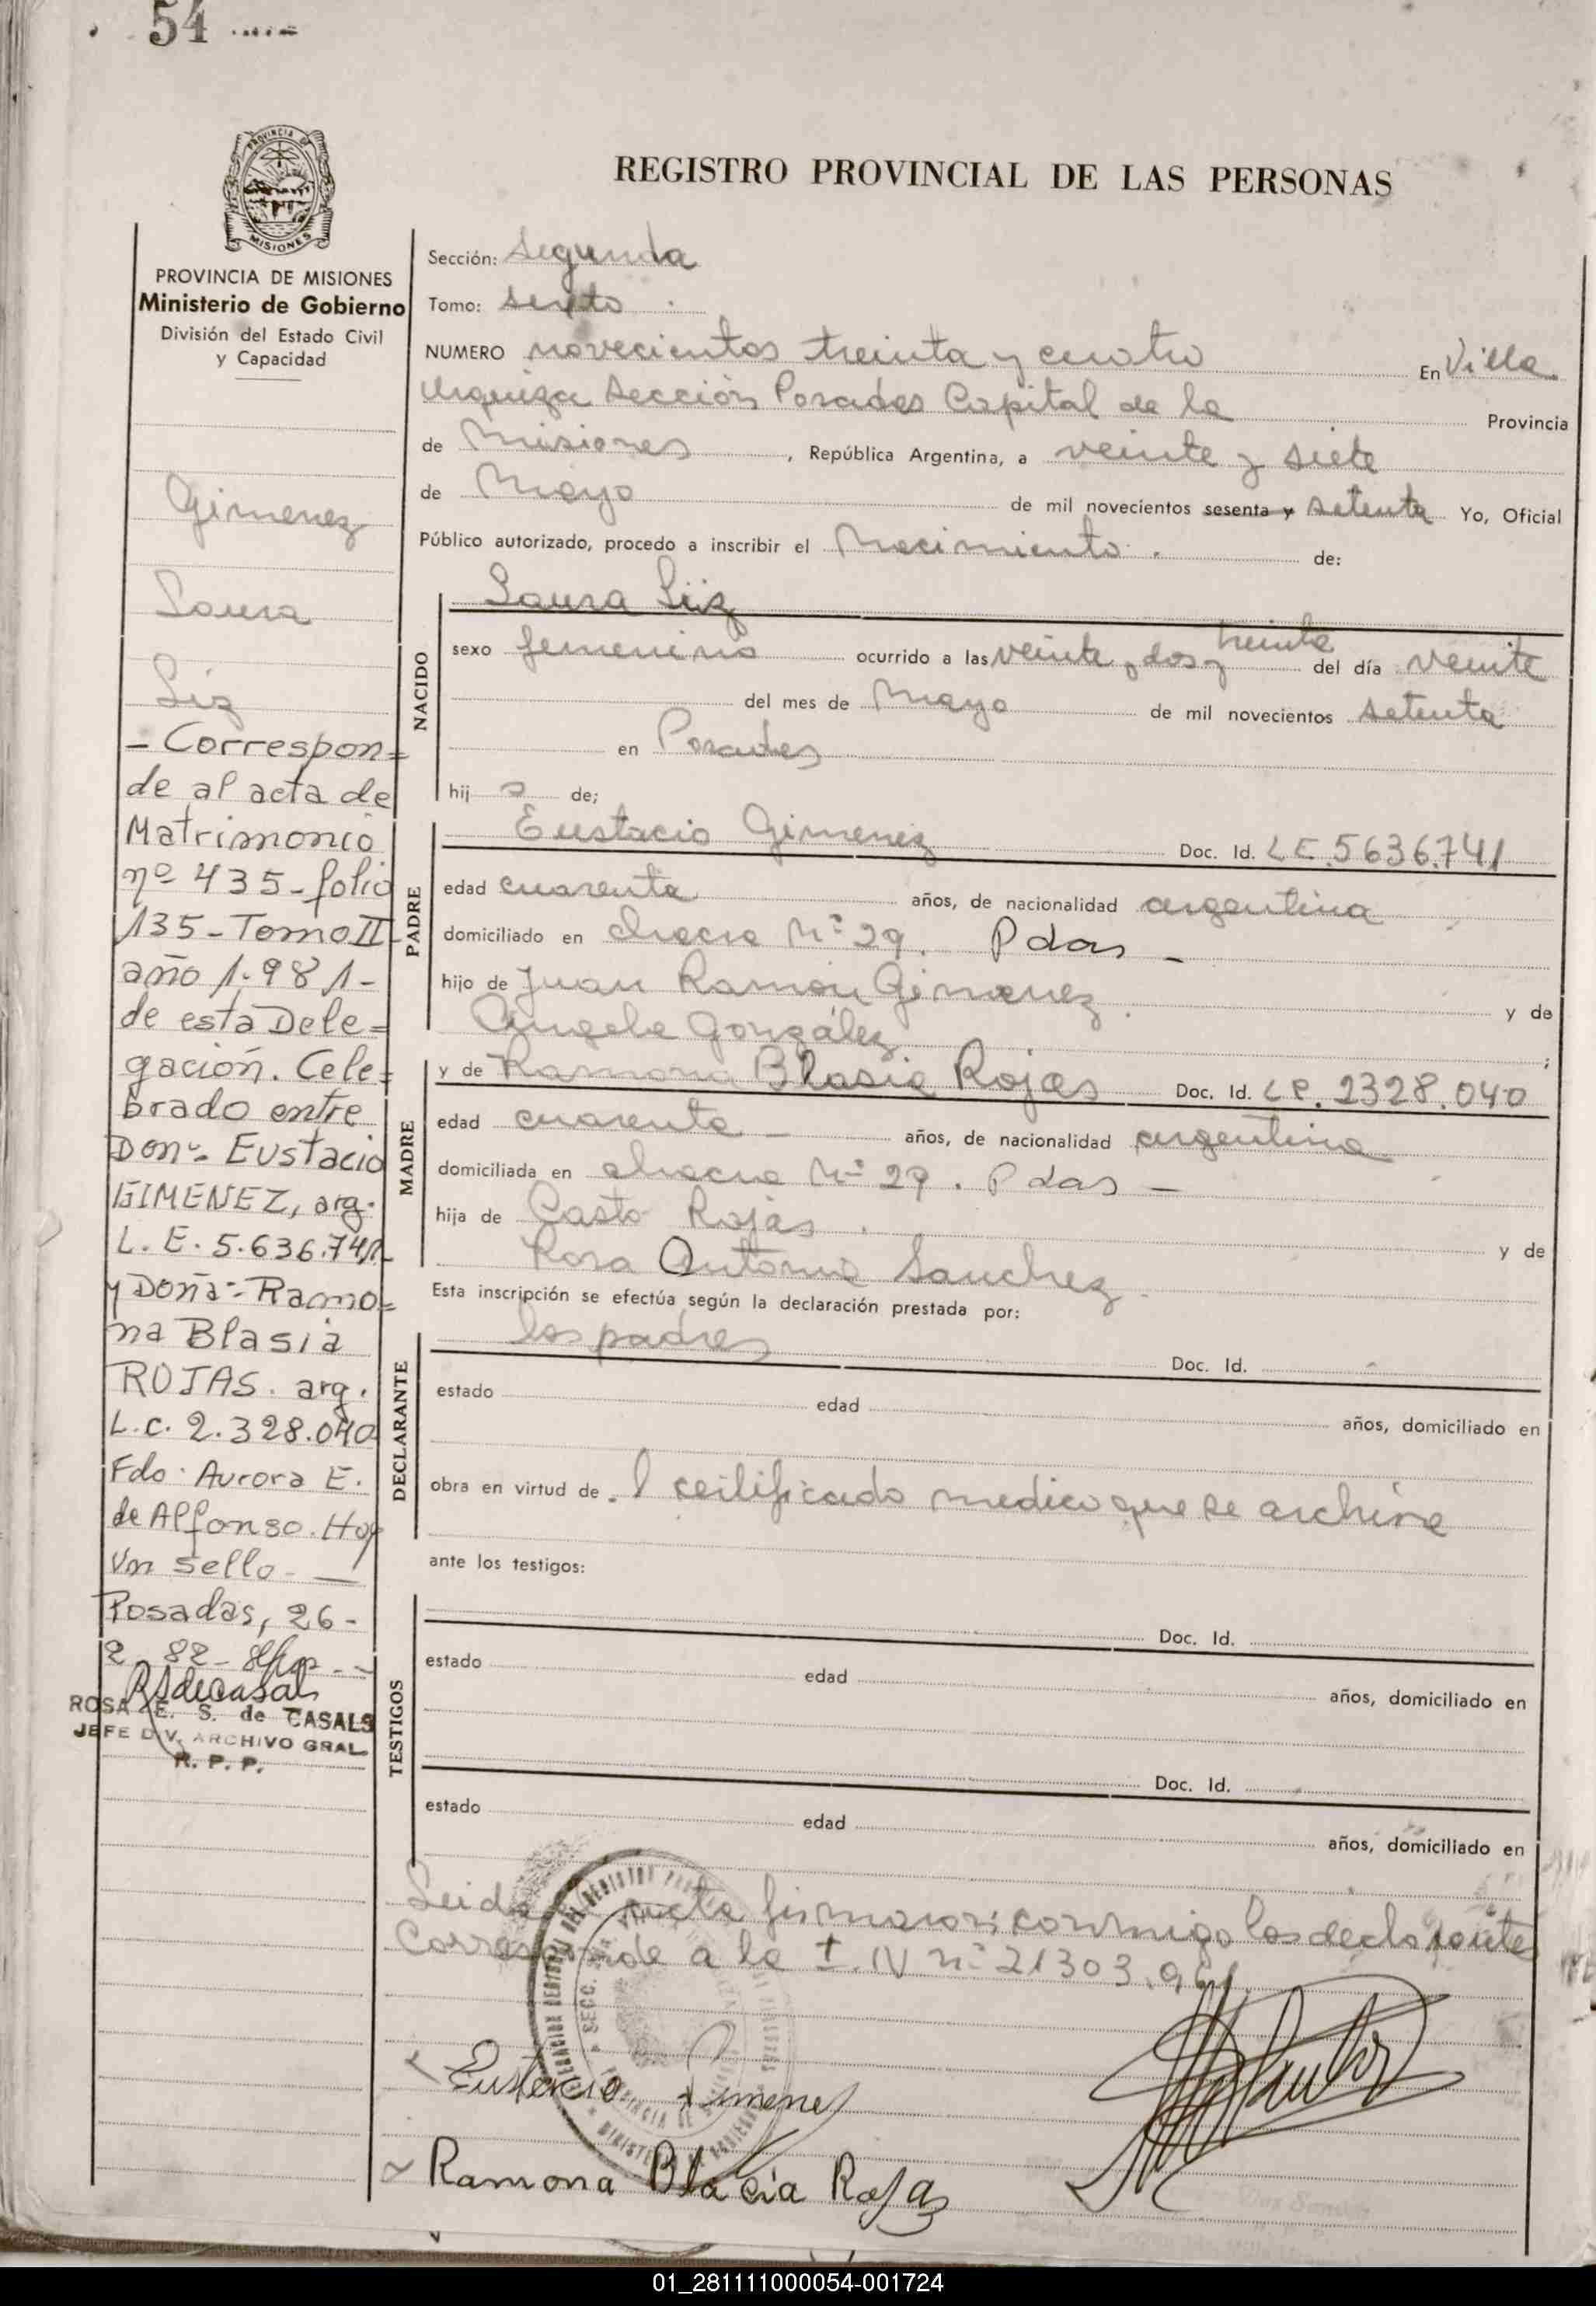 54
REGISTRO PROVINCIAL DE LAS PERSONAS
PROVINCIA DE MISIONES
Ministerio de Gobierno
División del Estado Civil
y Capacidad
Gimenez
Laura
Liz
- Correspon=
de al acta de
Matrimonio
nº 435-folio
135-Tomo II
año 1.981-
de esta Dele=
gación. Cele=
brado entre
Don:- Eustacio
GIMENEZ, arg.
L. E. 5.636.741
y Doña:- Ramo=
na Blasia
ROJAS. arg.
L.C. 2.328.040
Fdo: Aurora E.
de Alfonso. Hay
Un sello. —
Posadas, 26-
2-82-
ROSA E. S. de CASALS
JEFE DIV. ARCHIVO GRAL.
R. P. P.
Sección: Segunda
Tomo: sexto
NUMERO novecientos treinta y cuatro En Villa
Urquiza Sección Posadas Capital de la Provincia
de Misiones, República Argentina, a veinte y siete
de Mayo de mil novecientos sesenta y setenta Yo, Oficial
Público autorizado, procedo a inscribir el Nacimiento. de:
NACIDO
Laura Liz
sexo femenino ocurrido a las veinte y dos y treinta del día veinte
del mes de Mayo de mil novecientos setenta
en Posadas
hij a de;
PADRE
Eustacio Gimenez Doc. Id. LE.5636.741
edad cuarenta años, de nacionalidad argentina
domiciliado en chacra Nº 29. Pdas -
hijo de Juan Ramón Gimenez. y de
Angela González ;
MADRE
y de Ramona Blasia Rojas Doc. Id. LC. 2328.040
edad cuarenta - años, de nacionalidad argentina
domiciliada en chacra Nº 29. Pdas -
hija de Casto Rojas. y de
Rosa Antonia Sanchez.
Esta inscripción se efectúa según la declaración prestada por:
DECLARANTE
los padres Doc. Id.
estado edad años, domiciliado en
obra en virtud de.l certificado medico que se archiva
ante los testigos:
TESTIGOS
Doc. Id.
estado edad años, domiciliado en
Doc. Id.
estado edad años, domiciliado en
Leida acta firmaron conmigo los declarantes
Corresponde a la I. IV nº 21303.961
Eustacio Jimenez
Ramona Blacia Rojas
01_281111000054-001724